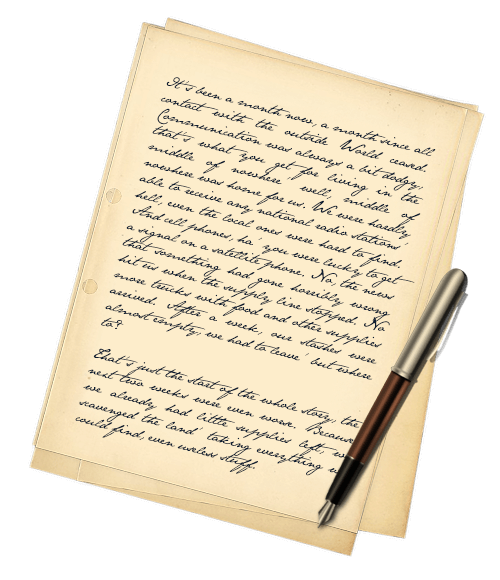 It's been a month now, a month since all
contact with the outside World ceased.
Communication was always a bit dodgy;
that's what you get for living in the
middle of nowhere - well, middle of
nowhere was home for us. We were hardly
able to receive any national radio stations,
hell, even the local ones were hard to find.
And cell phones, ha, you were lucky to get
a signal on a satellite phone. No, the news
that something had gone horribly wrong
hit us when the supply line stopped. No
more trucks with food and other supplies
arrived. After a week, our stashes were
almost empty; we had to leave, but where
to?
That's just the start of the whole story; the
next two weeks were even worse. Because
we already had little supplies left, we
scavenged the land, taking everything we
could find, even useless stuff.